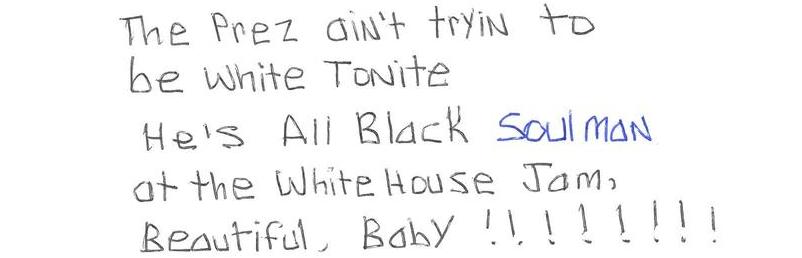 The Prez ain't tryin to
be White Tonite
He's All Black Soulman
at the White House Jam,
Beautiful, Baby !!!!!!!!